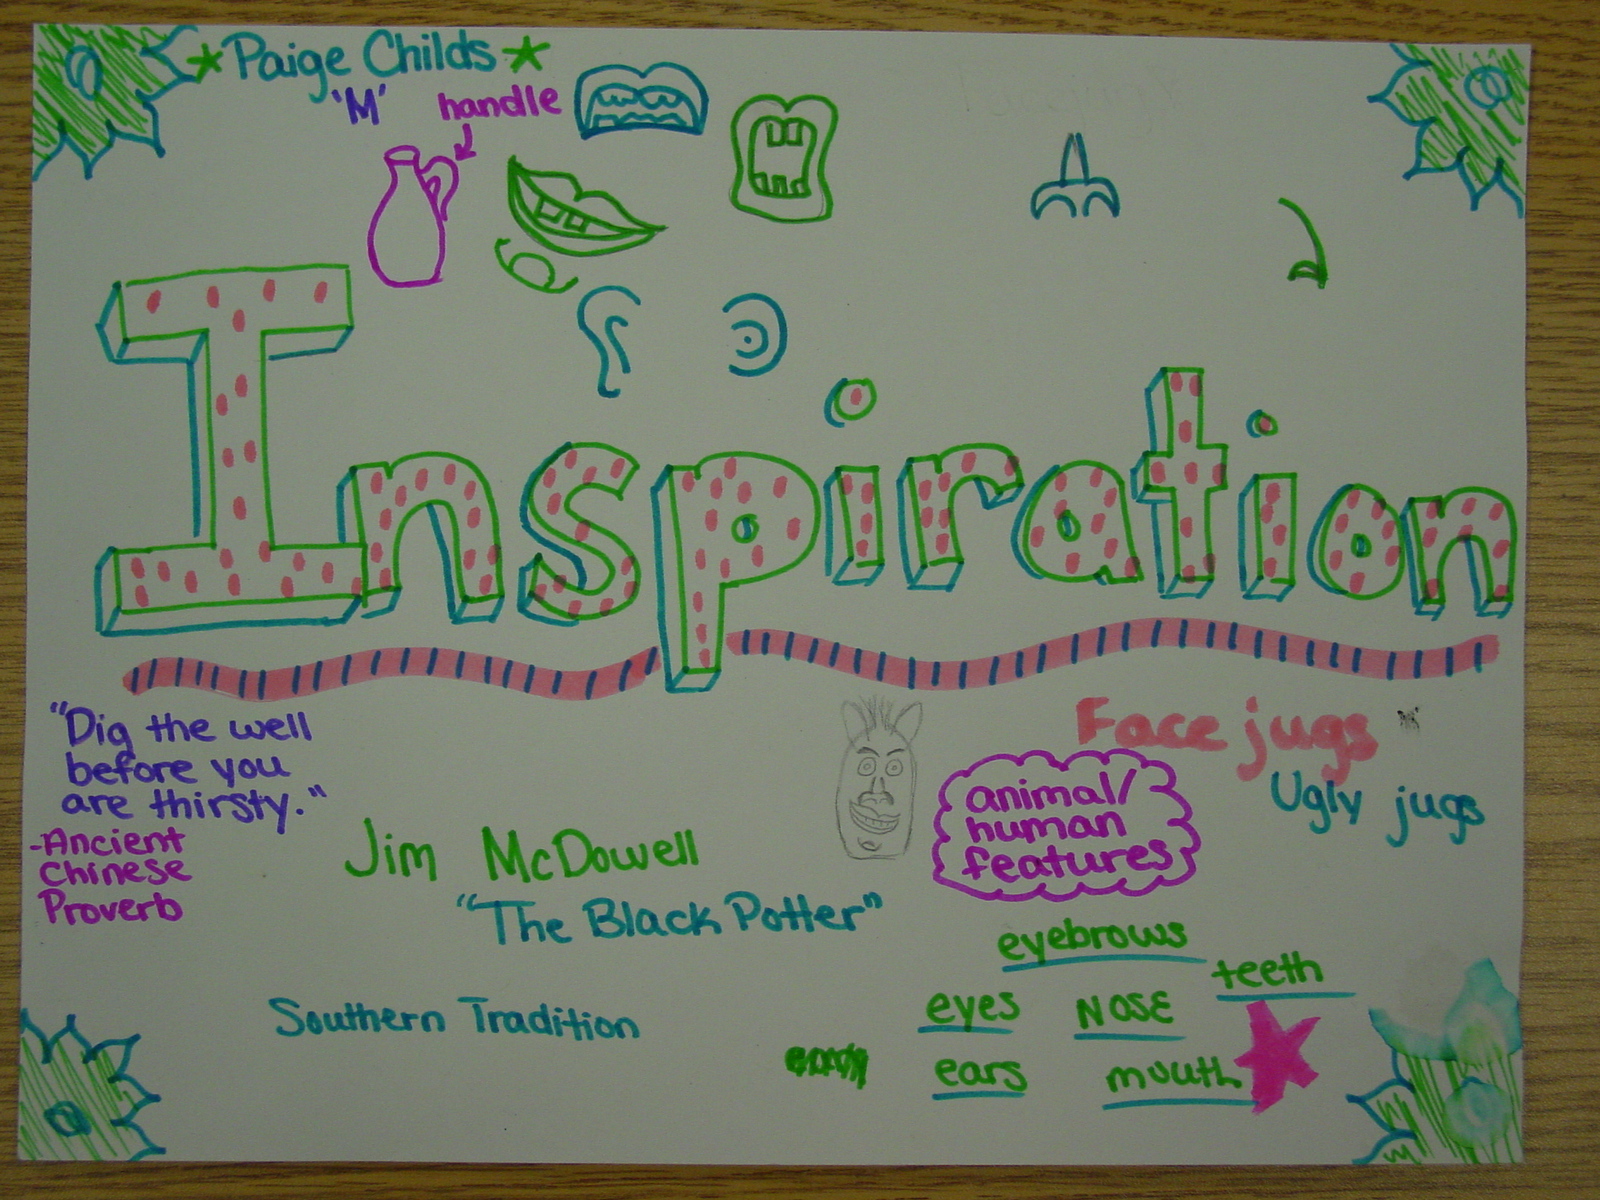 * Paige Childs *
'M'
handle
Inspiration
"Dig the well
before you
are thirsty."
-Ancient
Chinese
Proverb
Jim McDowell
"The Black Potter"
Southern Tradition
Face jugs
Ugly jugs
animal/
human
features
eyebrows
teeth
eyes
NOSE
ears
mouth